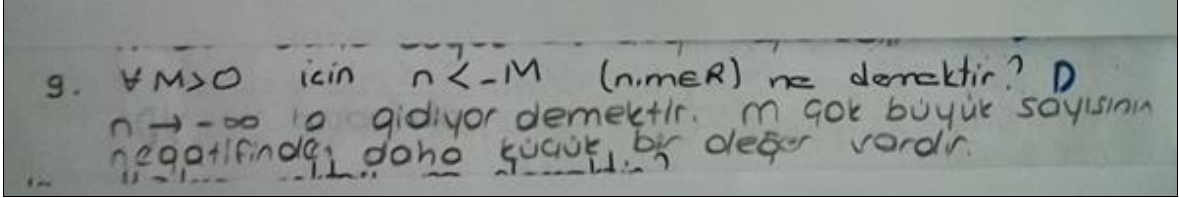 9. ∀ M>0 için n<-M (n,m∈R) ne demektir? D
n → -∞ a gidiyor demektir. m çok büyük sayısının
negatifinden daha küçük bir değer vardır.